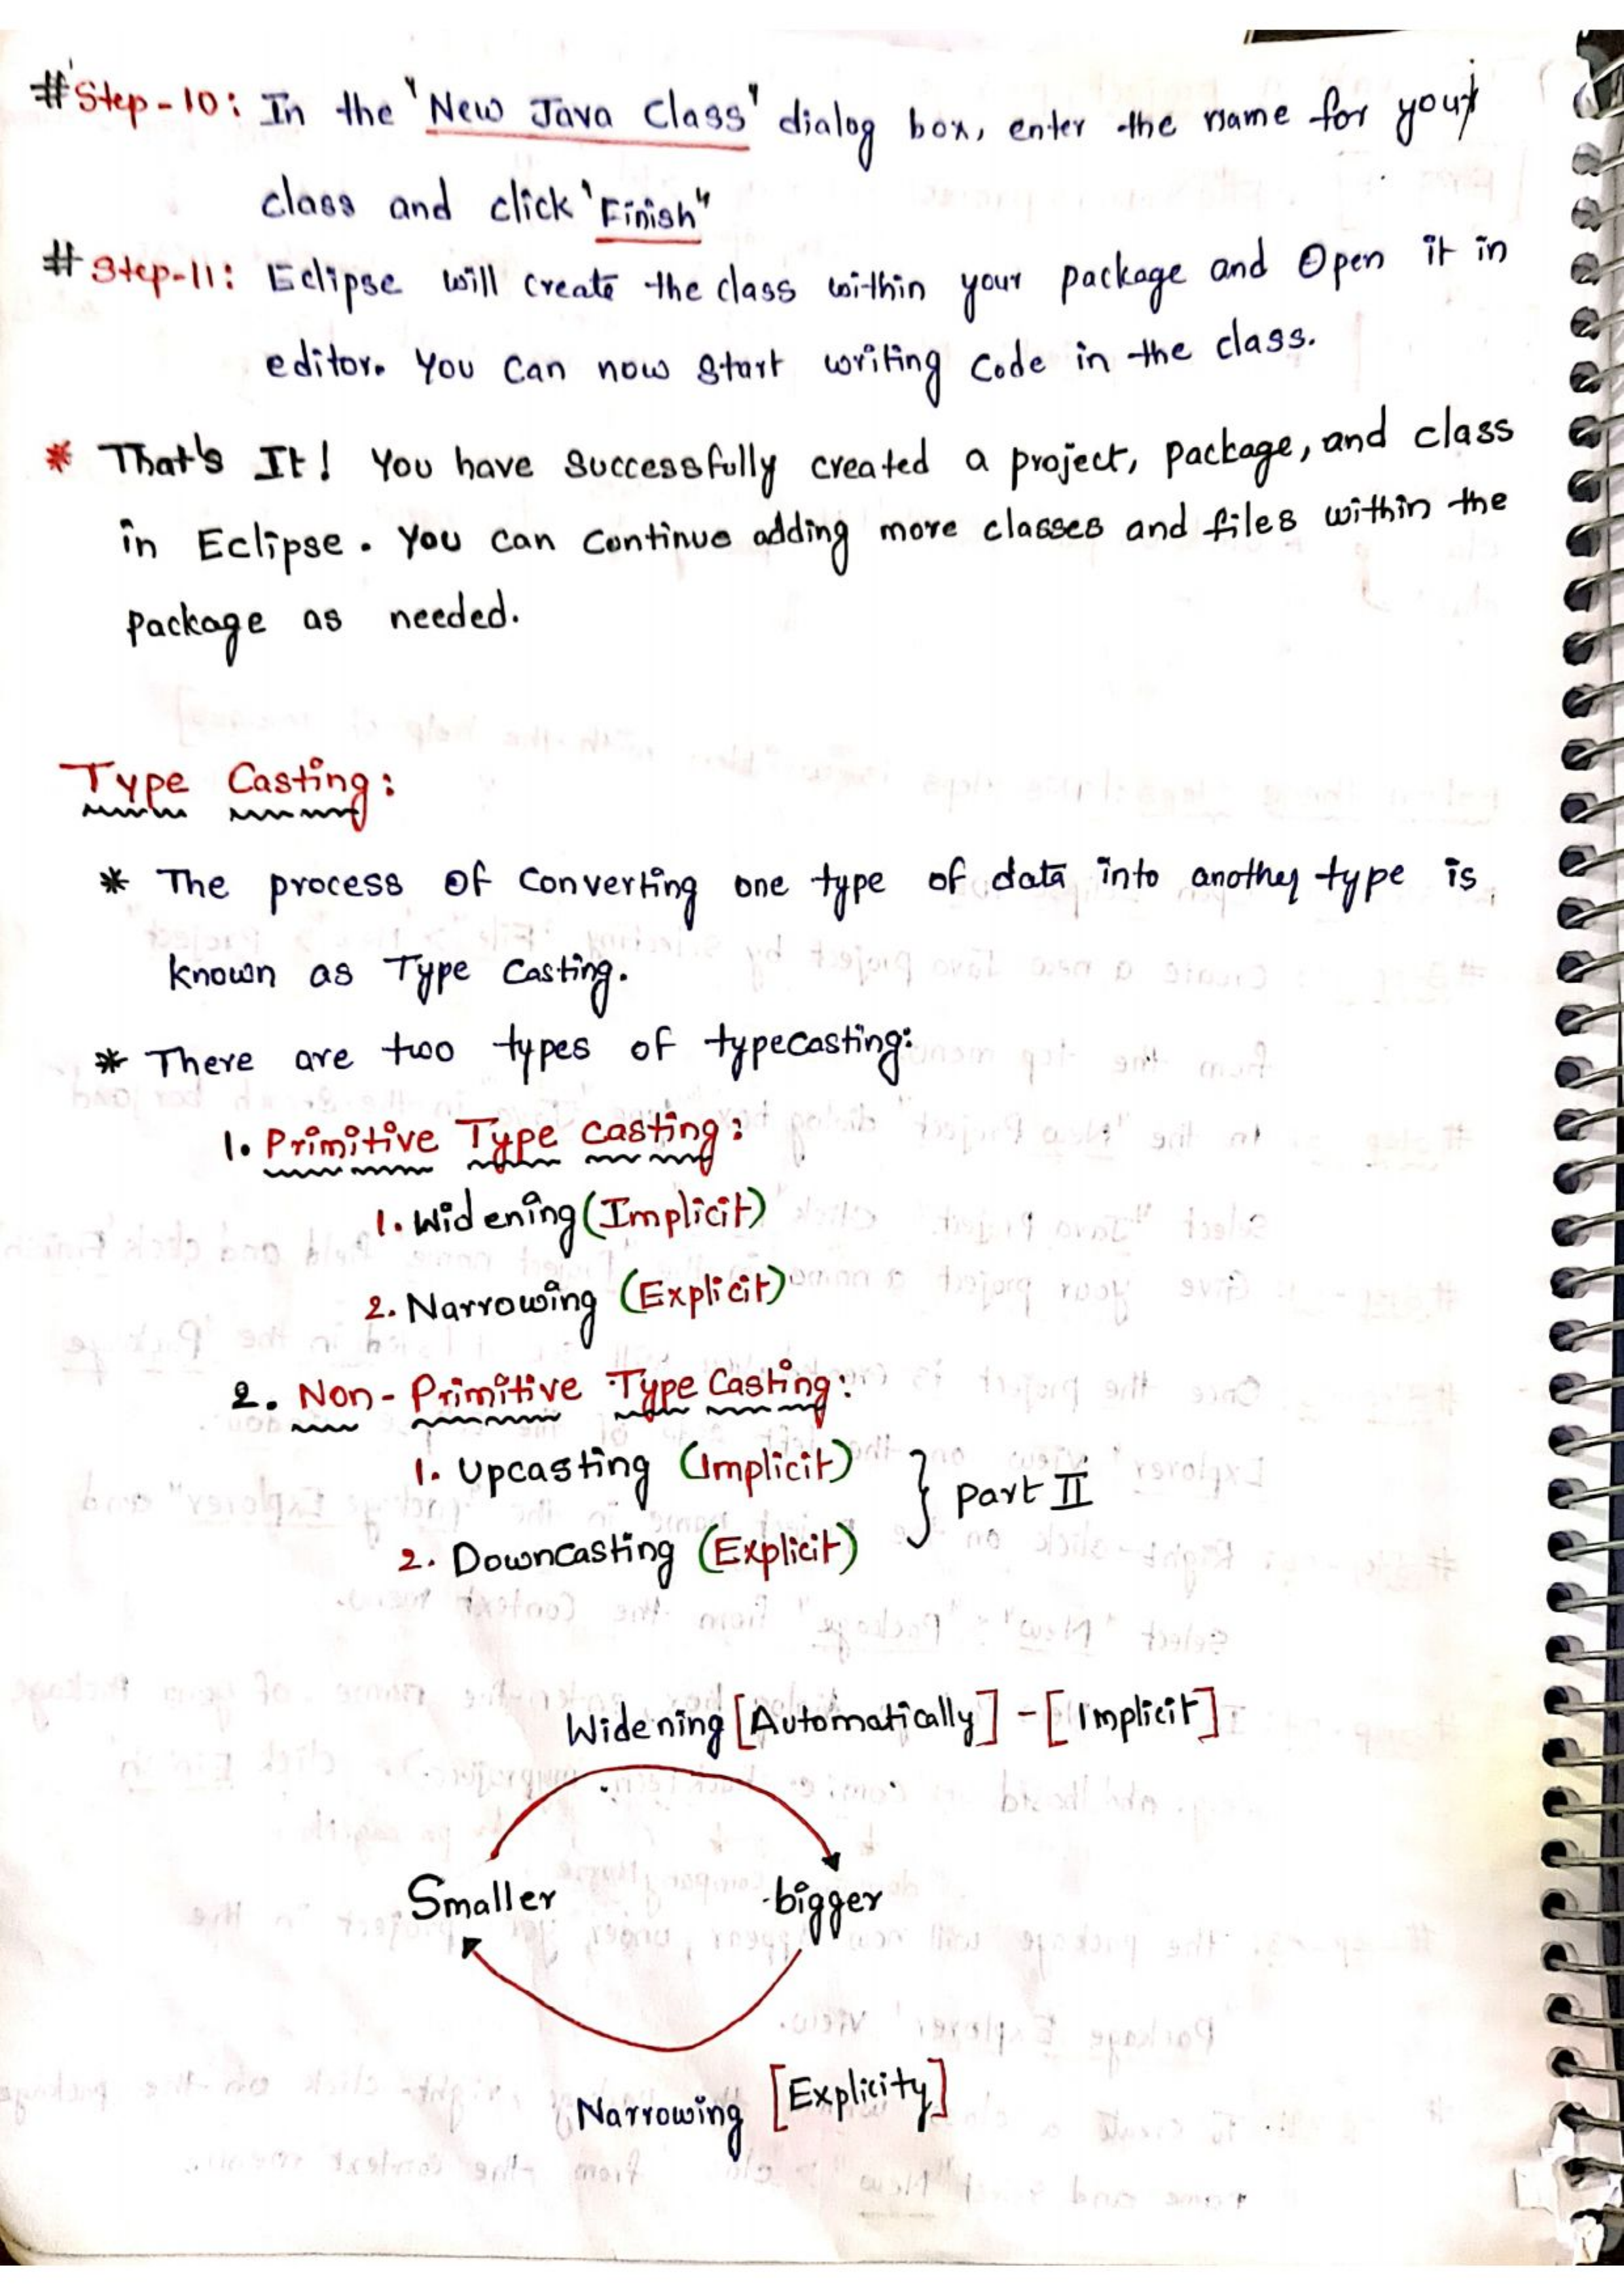 #Step-10: In the "New Java Class" dialog box, enter the name for your
class and click "Finish"
#Step-11: Eclipse will create the class within your package and Open it in
editor. You can now start writing code in the class.
* That's It! You have successfully created a project, package, and class
in Eclipse. You can continue adding more classes and files within the
package as needed.
Type Casting:
* The process of converting one type of data into another type is
known as Type Casting.
* There are two types of typecasting:
1. Primitive Type casting:
1. Widening (Implicit)
2. Narrowing (Explicit)
2. Non-Primitive Type Casting:
1. Upcasting (Implicit)
2. Downcasting (Explicit)
} part II
Widening [Automatically] - [Implicit]
Smaller bigger
Narrowing [Explicity]